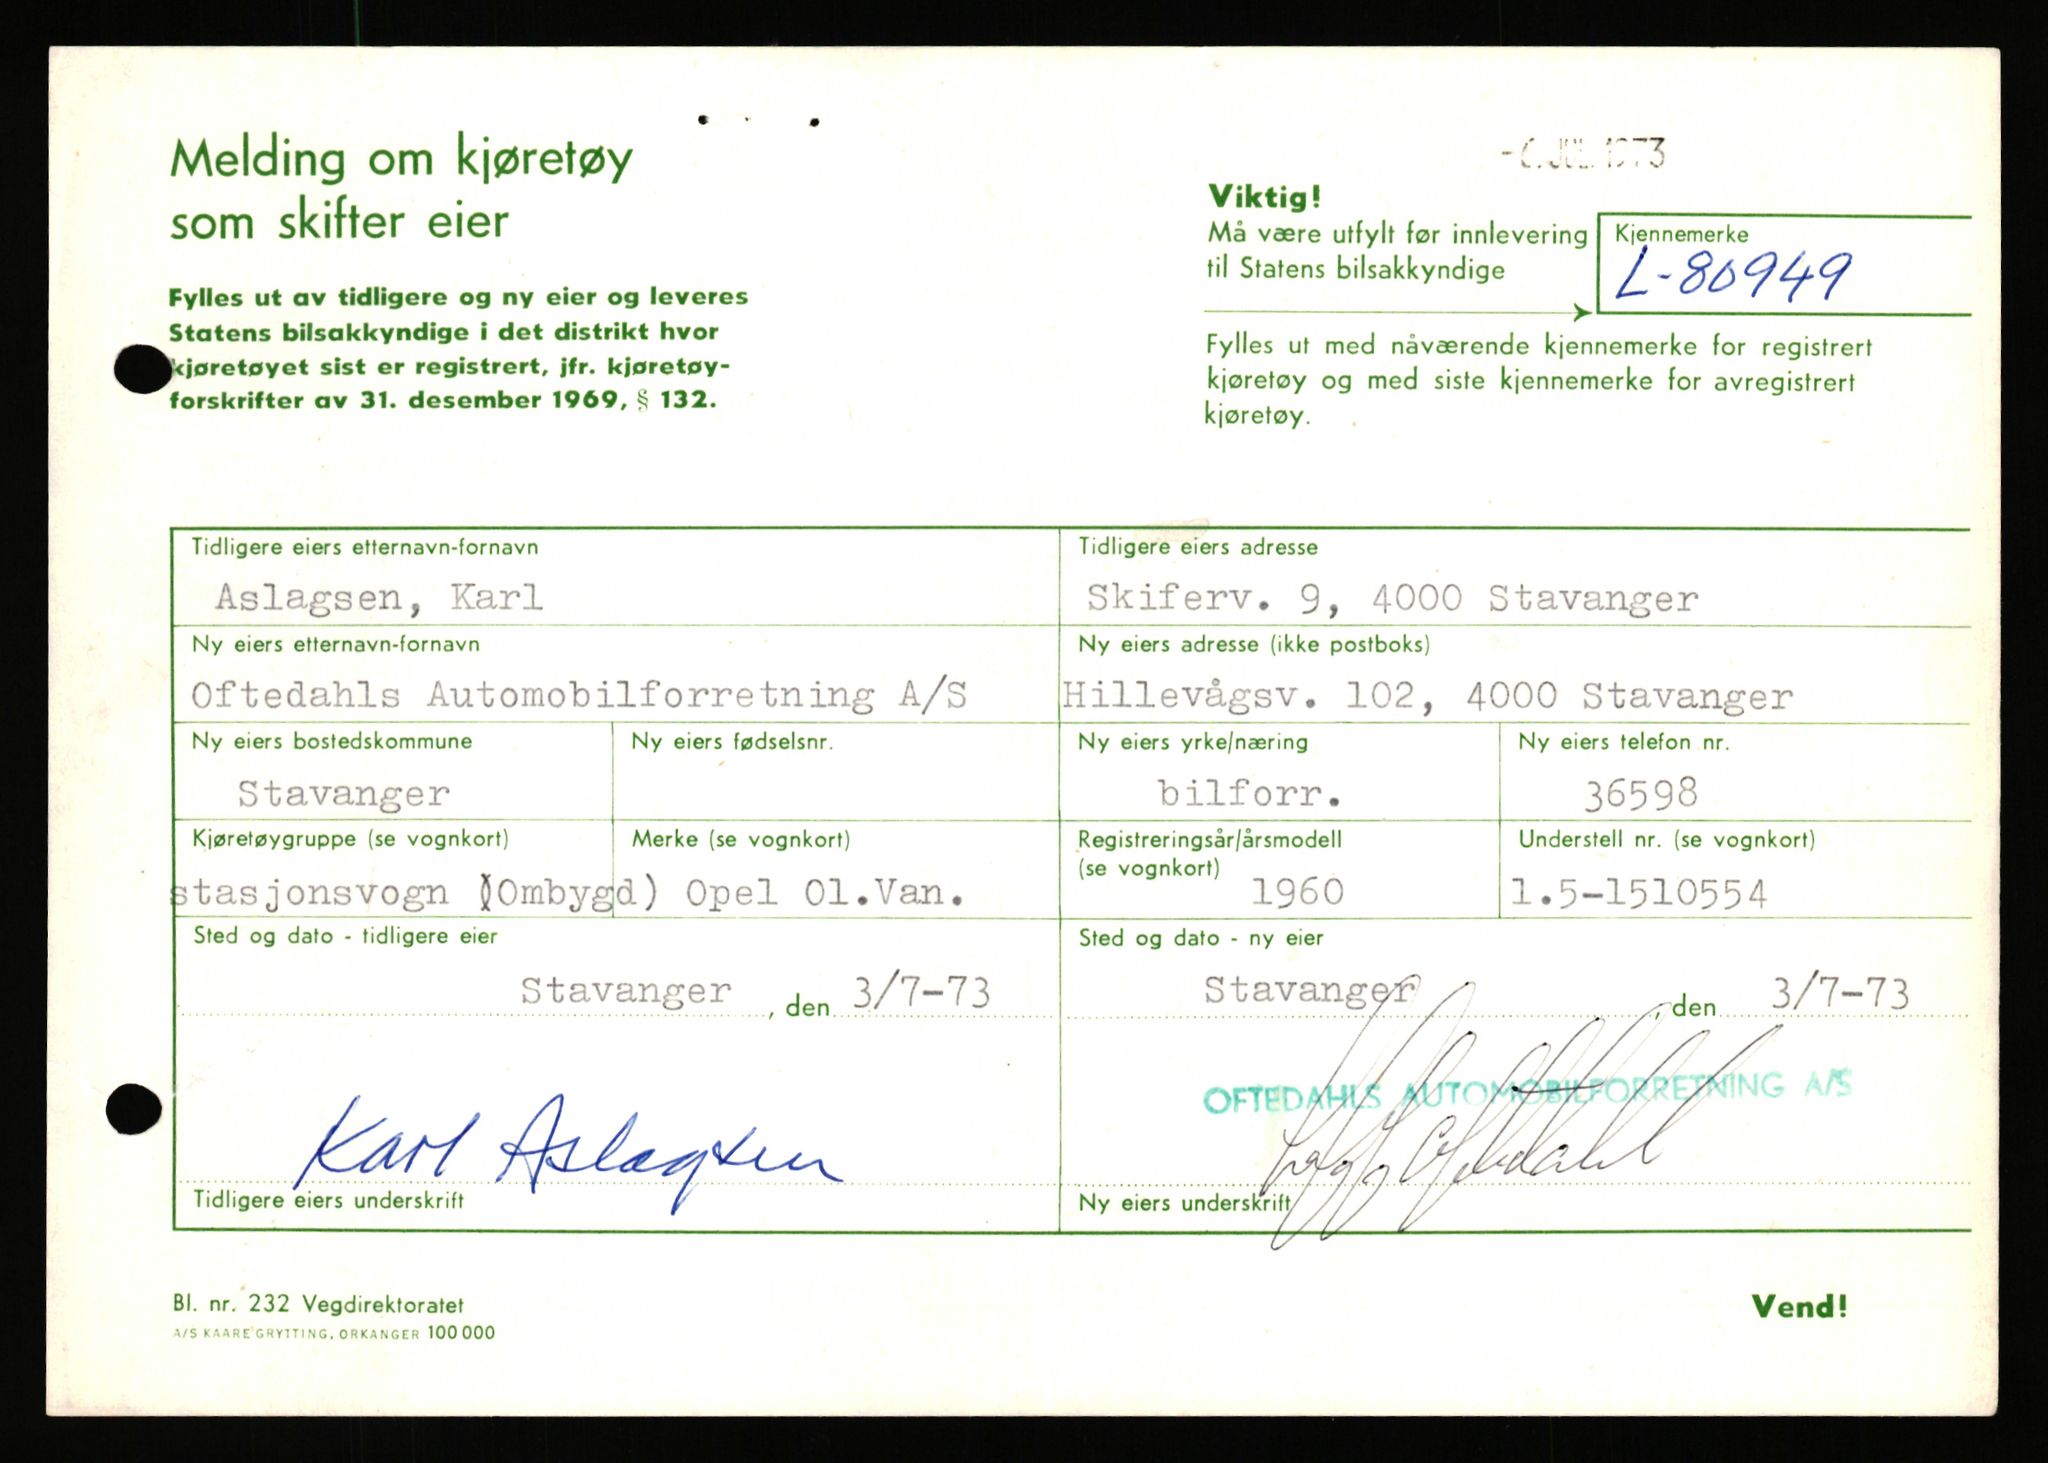 Melding om kjøretøy
som skifter eier
Fylles ut av tidligere og ny eier og leveres
Statens bilsakkyndige i det distrikt hvor
kjøretøyet sist er registrert, jfr. kjøretøy-
forskrifter av 31. desember 1969, § 132.
JUL 1973
Viktig!
Må være utfylt før innlevering
til Statens bilsakkyndige
Kjennemerke
L-80949
Fylles ut med nåværende kjennemerke for registrert
kjøretøy og med siste kjennemerke for avregistrert
kjøretøy.
Tidligere eiers etternavn-fornavn
Aslagsen, Karl
Tidligere eiers adresse
Skiferv. 9, 4000 Stavanger
Ny eiers etternavn-fornavn
Oftedahls Automobilforretning A/S
Ny eiers adresse (ikke postboks)
Hillevågsv. 102, 4000 Stavanger
Ny eiers bostedskommune
Stavanger
Ny eiers fødselsnr.
Ny eiers yrke/næring
bilforr.
Ny eiers telefon nr.
36598
Kjøretøygruppe (se vognkort)
stasjonsvogn (Ombygd)
Merke (se vognkort)
Opel Ol.Van.
Registreringsår/årsmodell
(se vognkort)
1960
Understell nr. (se vognkort)
1.5-1510554
Sted og dato - tidligere eier
Stavanger, den 3/7-73
Karl Aslagsen
Tidligere eiers underskrift
Sted og dato - ny eier
Stavanger, den 3/7-73
OFTEDAHLS AUTOMOBILFORRETNING A/S
Ny eiers underskrift
Bl. nr. 232 Vegdirektoratet
A/S KAARE GRYTTING, ORKANGER 100 000
Vend!